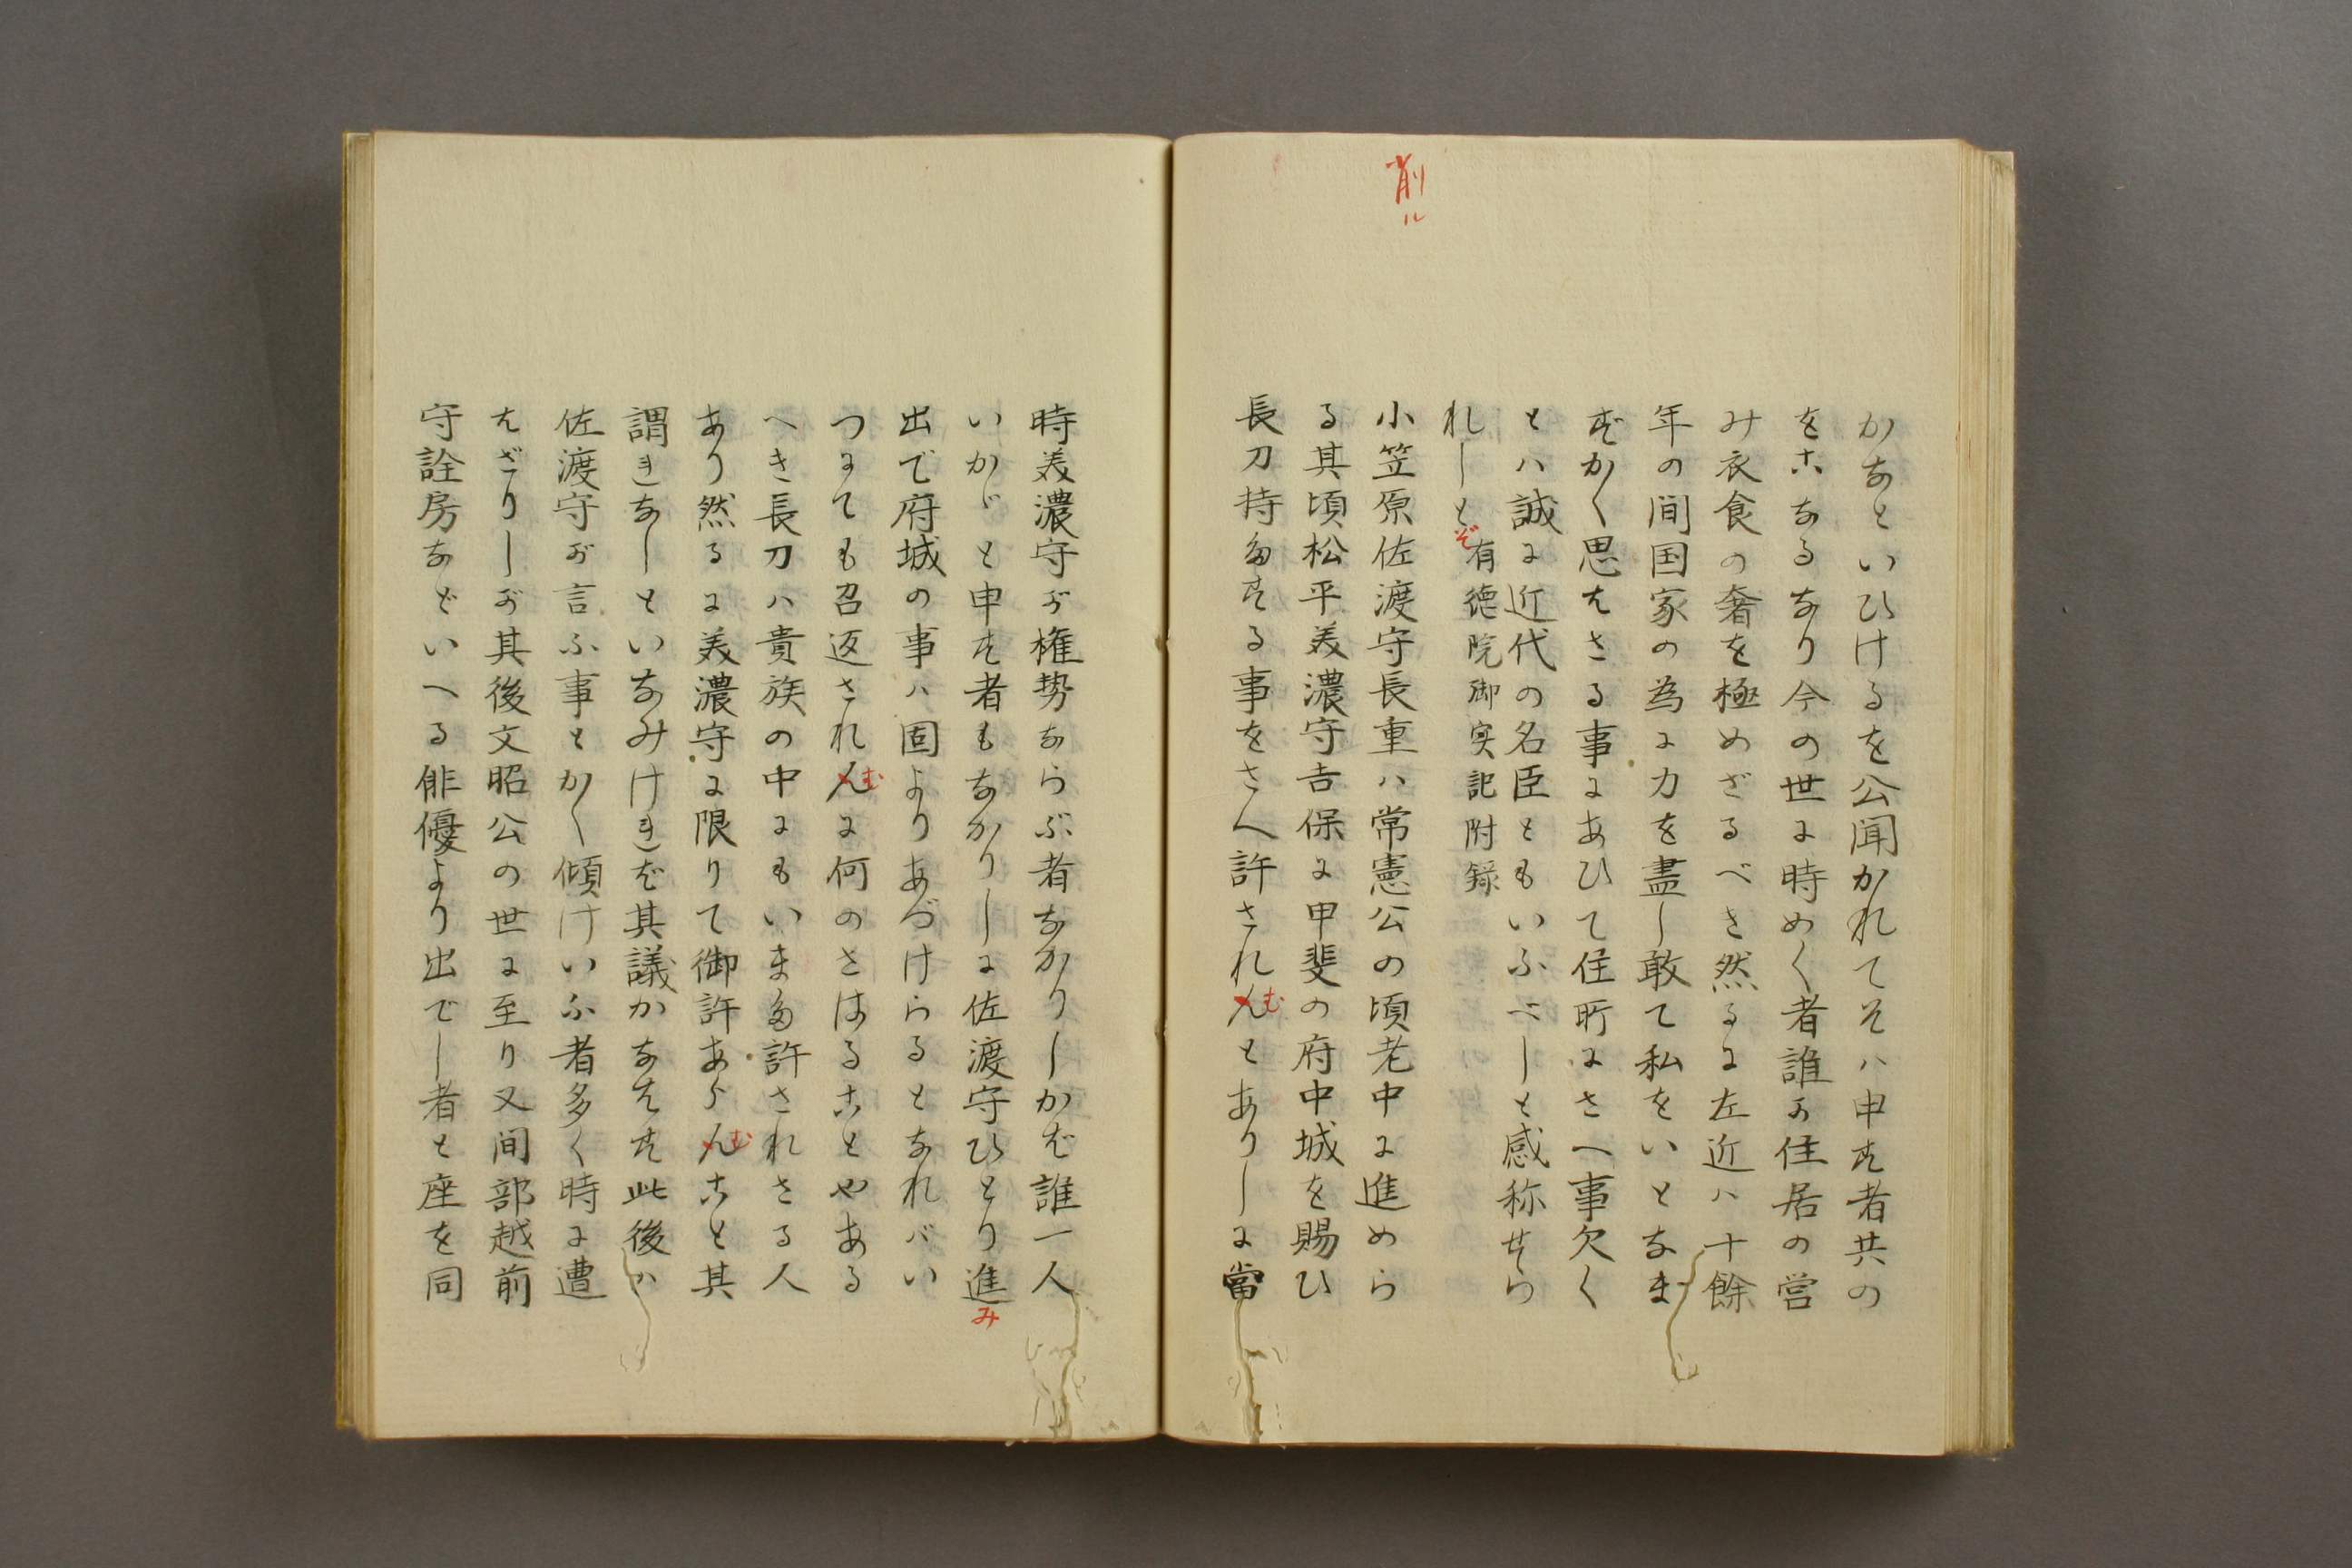 削ル
かなといひけるを公聞かれてそハ申す者共の
をこなるなり今の世に時めく者誰か住居の営
み衣食の奢を極めざるべき然るに左近ハ十餘
年の间国家の為に力を盡し敢て私をいとなま
ずかく思はさる事にあひて住所にさへ事欠く
とハ誠に近代の名臣ともいふべしと感称せら
れしとぞ有徳院御実記附録
小笠原佐渡守長重ハ常憲公の頃老中に進めら
る其頃松平美濃守吉保に甲斐の府中城を賜ひ
長刀持たする事をさへ許されんむとありしに當
時美濃守が権势ならぶ者なかりしかば誰一人
いかゞと申す者もなかりしに佐渡守ひとり進み
出で府城の事ハ固よりあづけらるとなれバい
つにても召返されんむに何のさはることやある
へき長刀ハ貴族の中にもいまだ許されさる人
あり然るに美濃守に限りて御許あらんむこと其
謂きなしといなみけきば其議かなはす此後ハ
佐渡守が言ふ事とかく傾けいふ者多く時に遭
はざりしが其後文昭公の世に至り又间部越前
守詮房などいへる俳優より出でし者と座を同